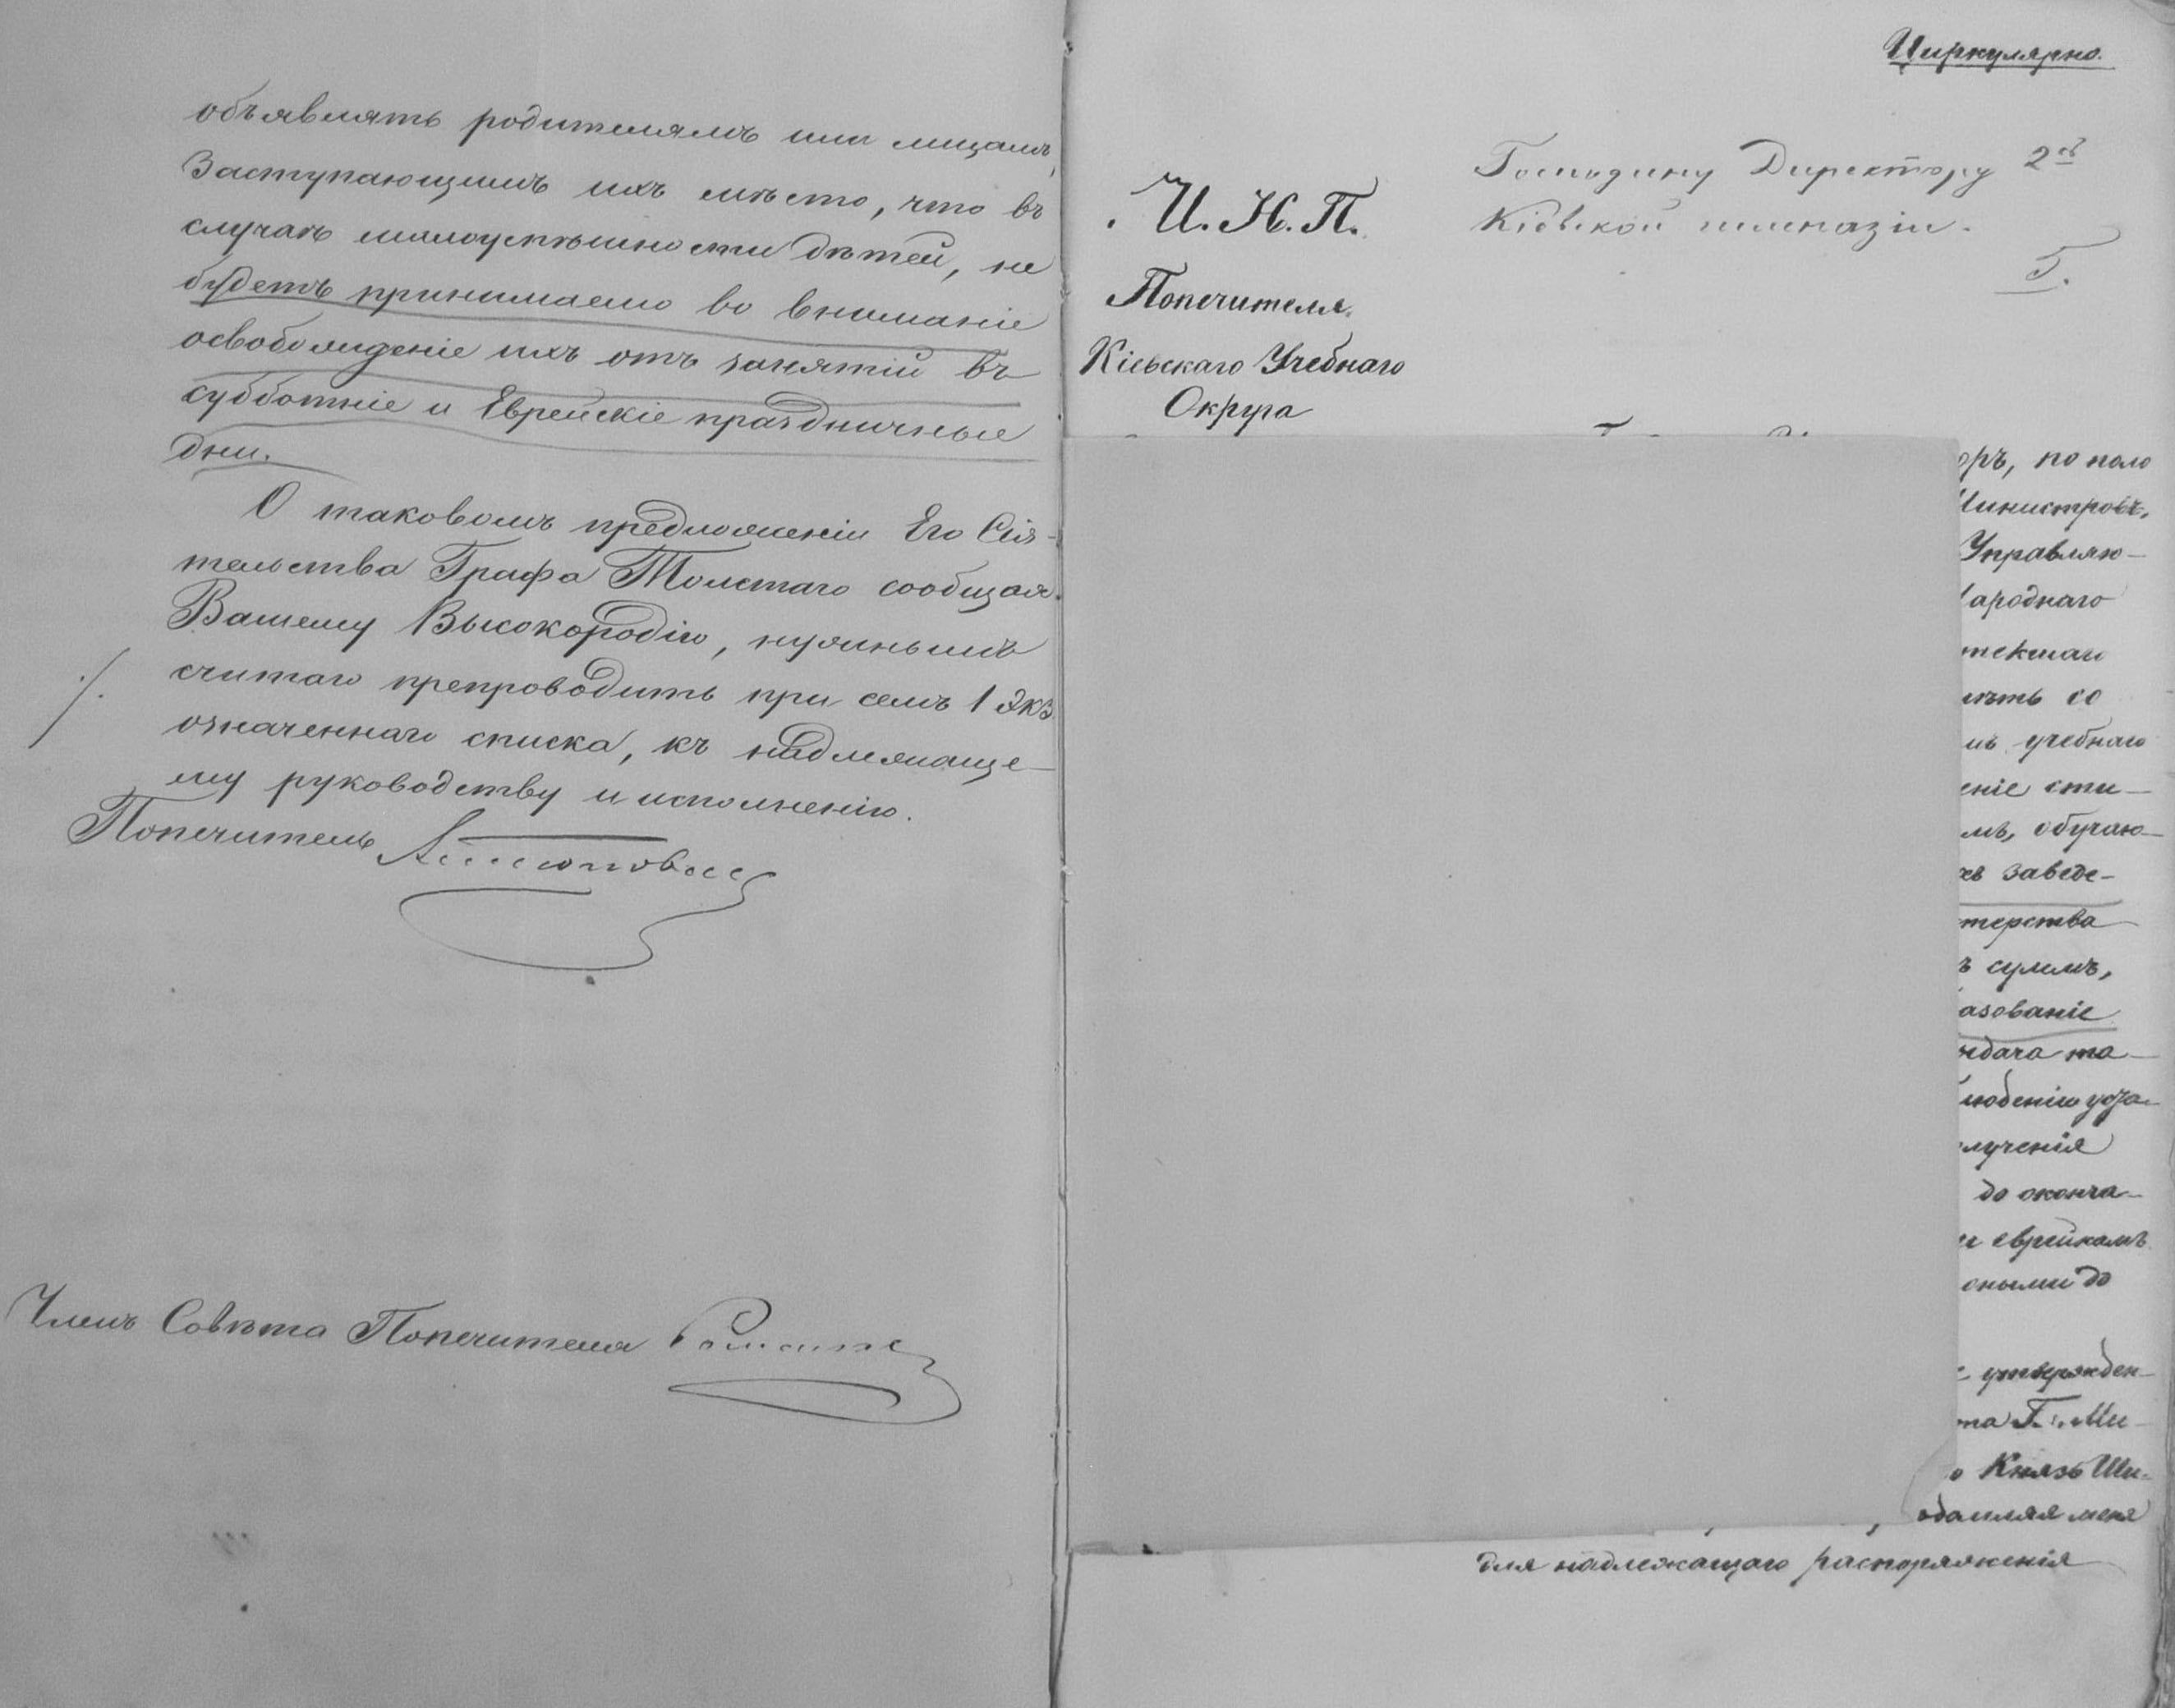 объявлять родителямъ или лицамъ,
заступающимъ ихъ мѣсто, что въ
случаѣ малоуспѣшности дѣтей, не
будетъ принимаемо во вниманіе
освобожденіе ихъ отъ занятій въ
субботніе и Еврейскіе праздничные
дни.
О таковомъ предложеніи Его Сія-
тельства Графа Толстаго сообщая
Вашему Высокородію, нужнымъ
считаю препроводить при семъ 1 экз.
означеннаго списка, къ надлежаще-
му руководству и исполненію.
Попечитель
Членъ Совѣта Попечителя
Циркулярно.
И. Н. П.
Попечителя
Кіевскаго Учебнаго
Округа
Господину Директору 2й
Кіевской гимназіи.
оръ, по поло
Министровъ,
Управляю-
ароднаго
текшаго
учебнаго
еніе сти-
мъ, обучаю-
заведе-
терства
ъ суммъ,
азованіе
ыдача та-
люденіи
лученія
до оконча-
еврейкамъ
сными до
утвержден-
та Г. Ми-
о Князь Ши-
для надлежащаго распоряженія